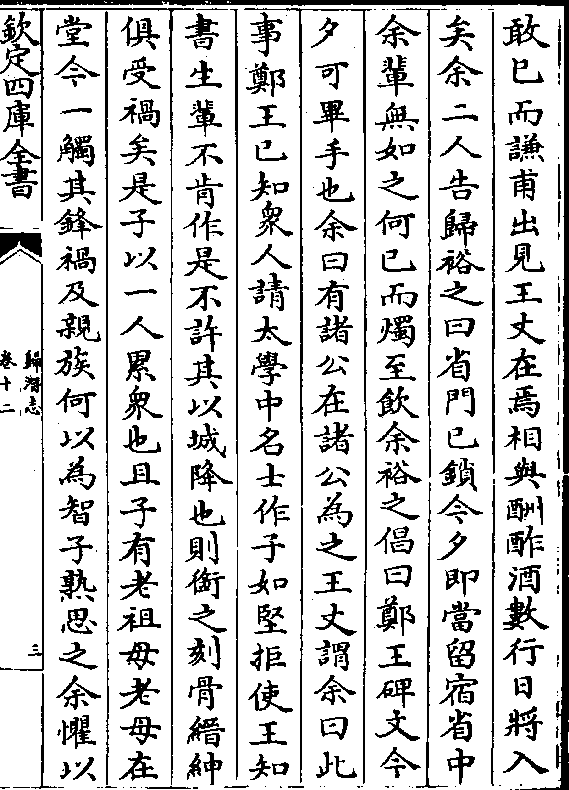 敢已而謙甫出見王丈在焉相與酬酢酒數行日將入
矣余二人告歸裕之曰省門已鎖今夕即當留宿省中
余輩無如之何已而燭至飲余裕之倡曰鄭王碑文今
夕可畢手也余曰有諸公在諸公為之王丈謂余曰此
事鄭王已知衆人請太學中名士作子如堅拒使王知
書生輩不肯作是不許其以城降也則銜之刻骨縉紳
俱受禍矣是子以一人累衆也且子有老祖母老母在
堂今一觸其鋒禍及親族何以為智子熟思之余懼以
欽定四庫全書
歸潛志
卷十二
三